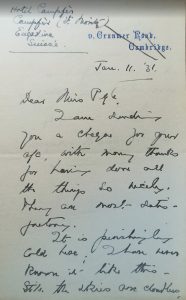 Hotel Campfèr
Campfèr (St. Moritz)
Engadine
Suisse.
9, Cranmer Road,
Cambridge.
Jan. 11. '31.
Dear Miss Pye
I am sending
you a cheque for your
a/c, with many thanks
for having done all
the things so nicely.
They are most satis-
factory.
It is perishingly
cold here, I have never
known it like this -
Still the skies are cloudless